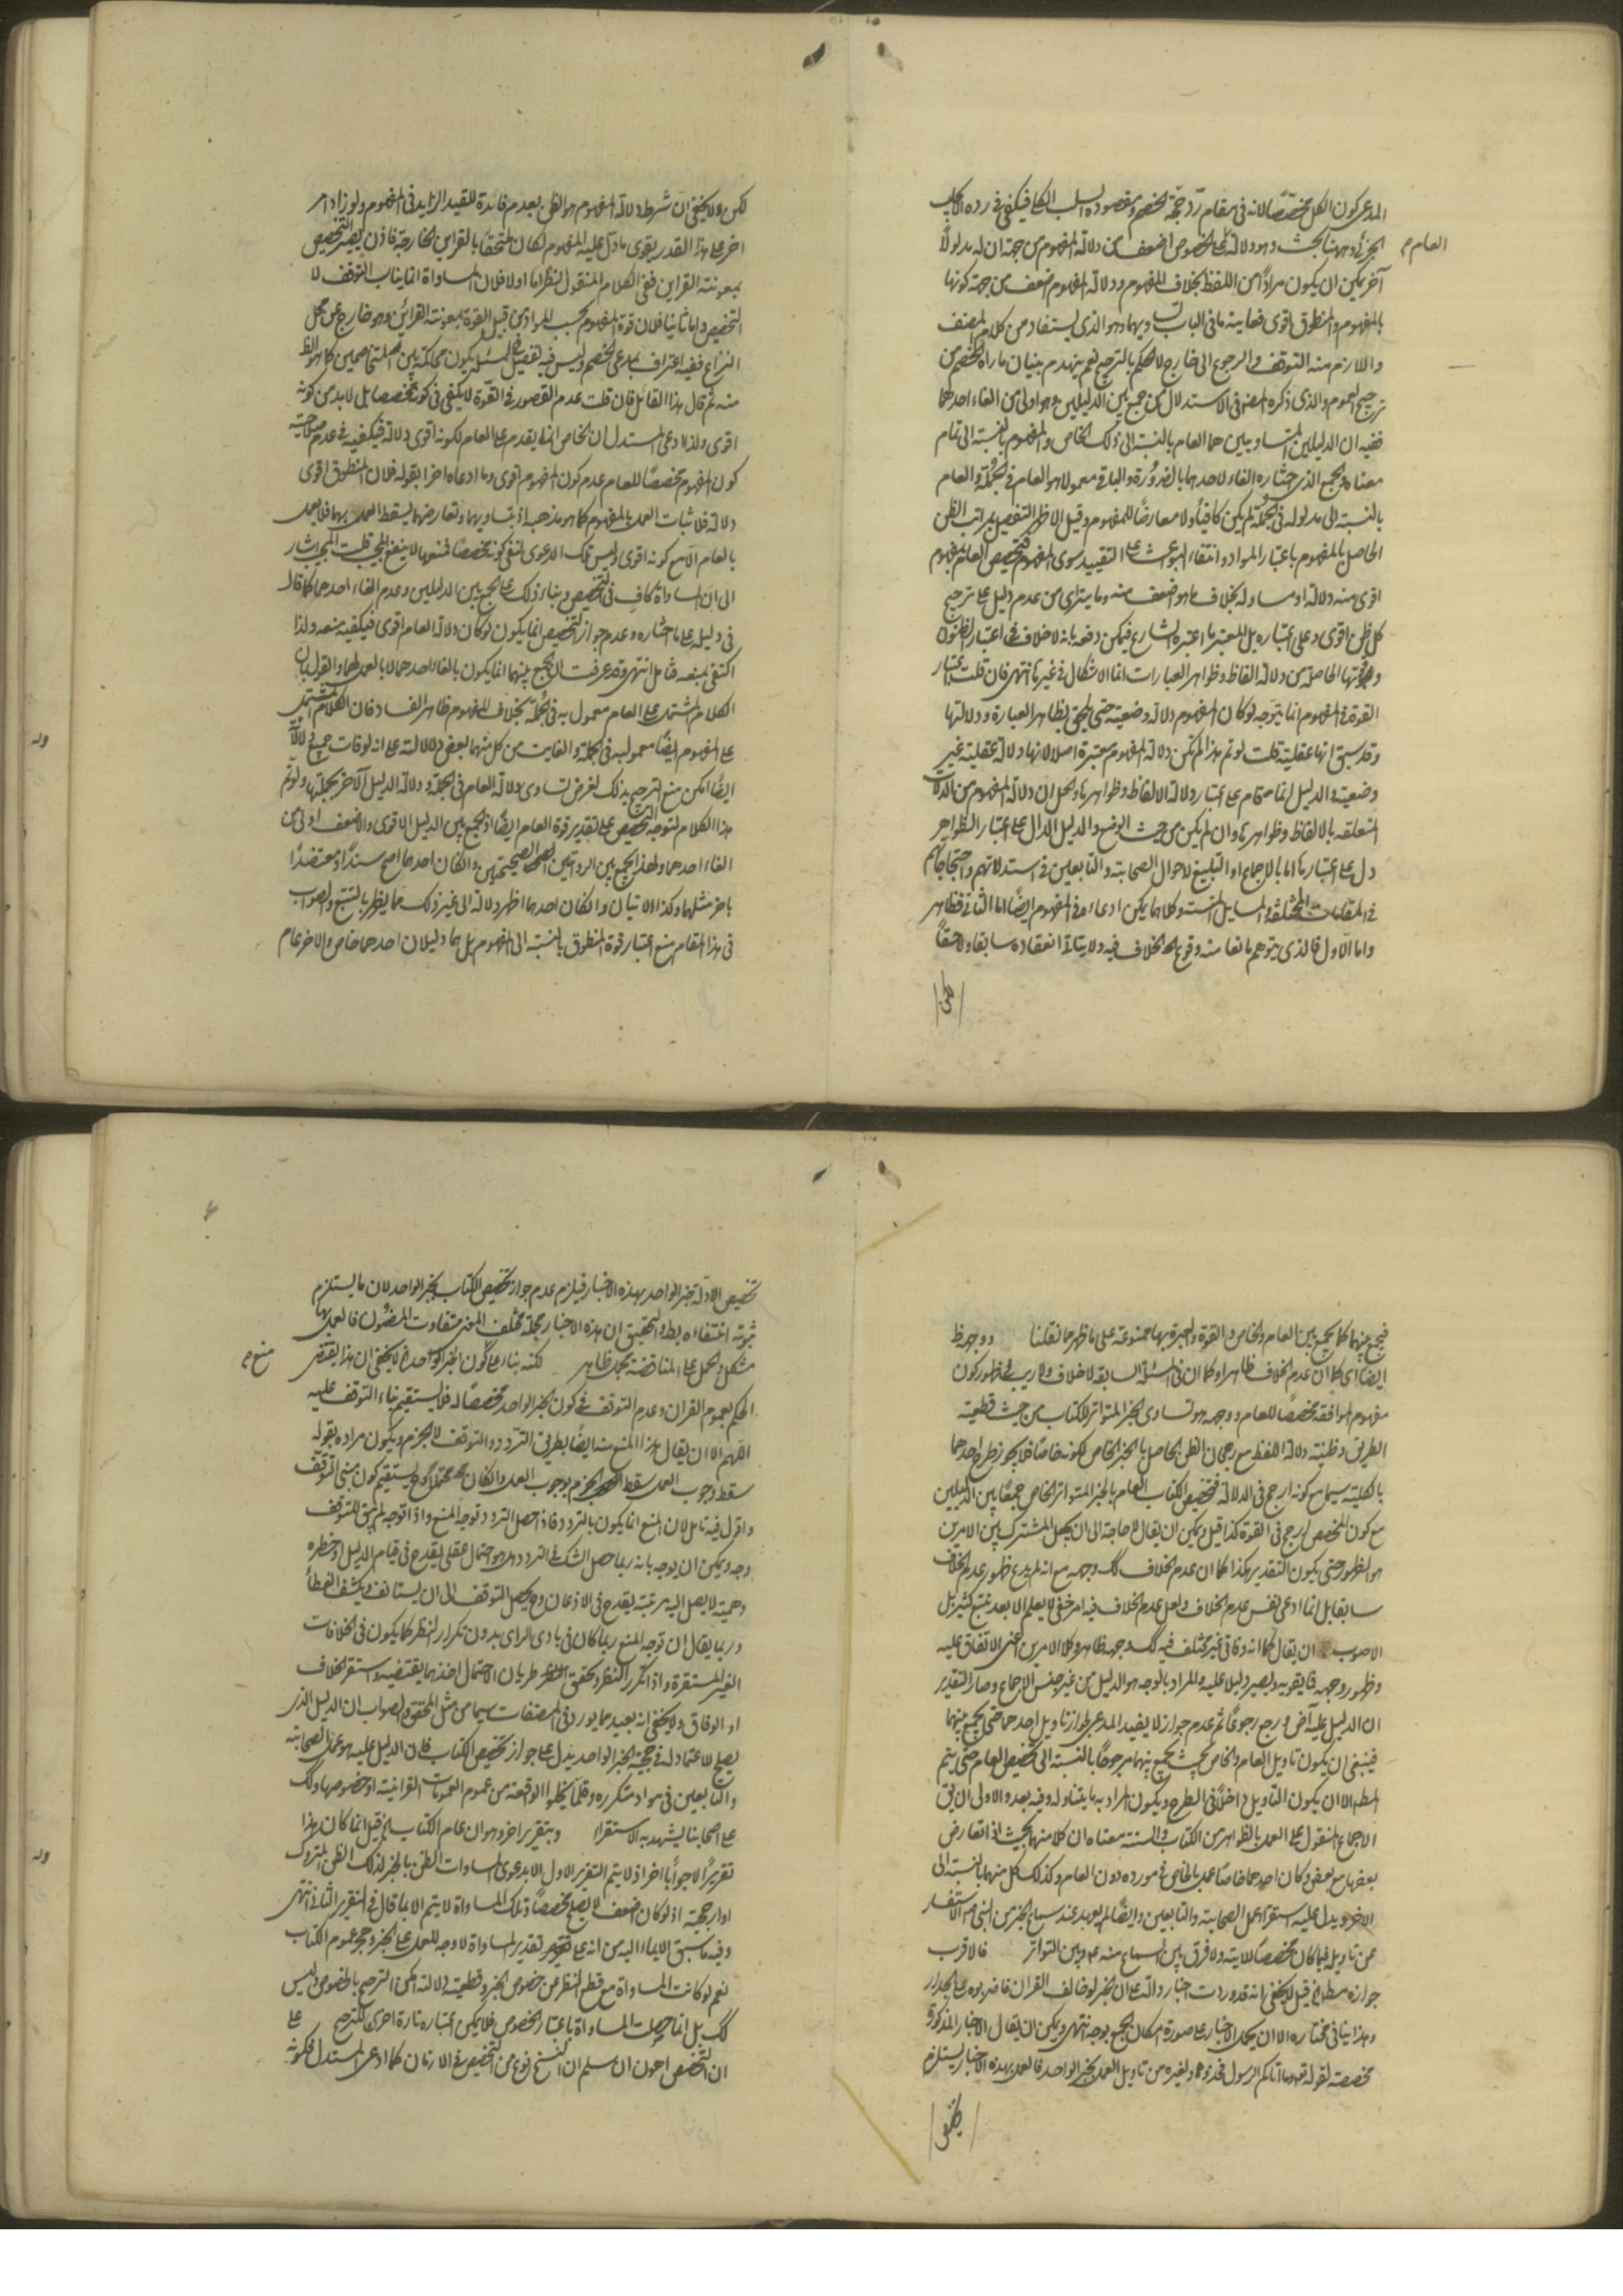 المدعى كون الكل مخصصًا لانه فى مقام ردّ حجّة الخصم ومقصوده السلب الكلى فيكفى فى رده الايجاب
الجزئى وههنا بحث وهو دلالة العام على الخصوص اضعف من دلالة المفهوم من جهة ان له مدلولًا
آخر يمكن ان يكون مرادًا من اللفظ بخلاف المفهوم ودلالة المفهوم اضعف من جهة كونها
بالمفهوم والمنطوق اقوى فغاية ما فى الباب تساويهما وهو الذى يستفاد من كلام المصنف
واللازم منه التوقف والرجوع الى خارج لا الحكم بالترجيح نعم ينهدم بنيان ما رآه الخصم من
ترجيح العموم والذى ذكره المصنف فى الاستدلال من جمع بين الدليلين وهو اولى من الغاء احدهما
ففيه ان الدليلين المتساويين هما العام بالنسبة الى ذلك الخاص والمفهوم بالنسبة الى تمام
معناه والجمع الذى اختاره الغاء لاحدهما بالضرورة والباقى معمولا هو العام فى الجملة والعام
بالنسبة الى مدلوله فى الجملة لم يكن كافيًا ولا معارضًا للمفهوم وقيل الاظهر التفصيل بمراتب الظن
الحاصل بالمفهوم باعتبار المواد وانتفاء البواعث على التقييد سوى المفهوم فتخصيص العام بمفهوم
اقوى منه دلالة او مساو له بخلاف ما هو اضعف منه وما يترائى من عدم دليل على ترجيح
كل ظن اقوى وعلى اعتباره بل المعتبر ما اعتبره الشارع فيمكن دفعه بانه لا خلاف فى اعتبار الظنون
وقوتها الحاصلة من دلالة الفاظ وظواهر العبارات انما الاشكال فى غيرها انتهى فان قلت اعتبار
القوة فى المفهوم انما يتوجه لو كان المفهوم دلالة وضعية حتى يلحق بظاهر العبارة ودلالتها
وقد سبق انها عقلية قلت لو تم هذا لم تكن دلالة المفهوم معتبرة اصلا لانها دلالة عقلية غير
وضعية والدليل انما قام على اعتبار دلالة الالفاظ وظواهرها والحل ان دلالة المفهوم من الدلالات
المتعلقة بالالفاظ وظواهرها وان لم يكن من حيث الوضع والدليل الدال على اعتبار الظواهر
دل على اعتبارها اما بالاجماع او التبليغ لاحوال الصحابة والتابعين فى استدلالاتهم واحتجاجاتهم
فى المقامات المختلفة والمسايل المشتتة وكلاهما يمكن ادعاءه فى المفهوم ايضًا اما الثانى فظاهر
واما الاول فالذى يتوهم مانعا منه وقوع الخلاف فيه ولا ينافى انعقاده سابقا ولاحقًا
العام م
لكن
لكن ولا يخفى ان شرط دلالة المفهوم هو الظن بعدم فائدة للقيد الزايد فى المفهوم ولو زاد امر
اخر على هذا القدر يقوى ما دل عليه المفهوم لكان ملتحقًا بالقراين الخارجة فاذن يصير التخصيص
بمعونة القراين ففى الكلام المنقول نظر اما اولا فلان المساواة انما يناسب التوقف لا
التخصيص واما ثانيا فلان قوة المفهوم بحسب المواد من قبيل القوة بمعونة القرائن وهو خارج عن محل
النزاع ففيه اعتراف بمدعى الخصم وليس فيه تفصيل فى المسئلة يكون محاكمة بين المتخاصمين كما هو الظ
منه ثم قال هذا القائل فان قلت عدم القصور فى القوّة لا يكفى فى كونه مخصصا بل لا بد من كونه
اقوى ولذا ادعى المستدل ان الخاص انما يقدم على العام لكونه اقوى دلالة فيكفيه فى عدم صلاحية
كون المفهوم مخصصًا للعام عدم كون المفهوم اقوى وما ادعاه اخرا بقوله فلان المنطوق اقوى
دلالة فلاثبات العمل بالمفهوم كما هو مذهبه اذ بتساويهما وتعارضهما يسقط العمل بهما فلا يعمل
بالعام الا مع كونه اقوى وليس تلك الدعوى لنفى كونه مخصصًا فمنعها لا ينفع المجيب قلت المجيب اشار
الى ان المساواة كاف فى التخصيص وبناء ذلك على الجمع بين الدليلين وعدم الغاء احدهما كما قال
فى دليله على ما اختاره وعدم جواز التخصيص انما يكون لو كان دلالة العام اقوى فيكفيه منعه ولذا
اكتفى بمنعه فتأمل انتهى وقد عرفت ان الجمع بينهما انما يكون بالغاء احدهما لا بالعمل بهما والقول بان
الكلام المشتمل على العام معمول به فى الجملة بخلاف المفهوم ظاهر الفساد فان الكلام المشتمل
على المفهوم ايضًا معمول به فى الجملة والفايت من كل منهما بعض دلالاته على انه لو فات جميع دلالاته
ايضًا امكن منع الترجيح بذلك لفرض تساوى دلالة العام فى الجملة ودلالة الدليل الآخر بجملتها ولو تم
هذا الكلام لتوجه التخصيص على تقدير قوة العام ايضًا اذ الجمع بين الدليل الاقوى والاضعف اولى من
الغاء احدهما ولهذا يجمع بين الروايتين الصحيحتين وان كان احدهما اصح سندًا ومعتضدًا
باخر مثلهما وكذا الايتان وان كان احدهما اظهر دلالة الى غير ذلك مما يظهر بالتتبع والصواب
فى هذا المقام منع اعتبار قوة المنطوق بالنسبة الى المفهوم بل هما دليلان احدهما خاص والاخر عام
فيجمع بينهما كما يجمع بين العام والخاص والقوة والعبرة بها ممنوعة على ما ظهر مما نقلنا ووجهه ظ
ايضًا اى كما ان عدم الخلاف ظاهر او كما ان فى المسئلة السابقة لا خلاف ولا ريب فى ظهور كون
مفهوم الموافقة مخصصًا للعام ووجهه هو تساوى الخبر المتواتر للكتاب من حيث قطعية
الطريق وظنية دلالة اللفظ مع رجحان الظن الحاصل بالخبر الخاص لكونه خاصًا فلا يجوز طرح احدهما
بالكلية سيما مع كونه ارجح فى الدلالة فتخصيص الكتاب العام بالخبر المتواتر الخاص جمعًا بين الدليلين
مع كون المخصص ارجح فى القوة كذا قيل ويمكن ان يقال لا حاجة الى ان يجعل المشترك بين الامرين
هو الظهور حتى يكون التقدير هكذا كما ان عدم الخلاف كك وجهه مع انه لم يدع ظهور عدم الخلاف
سابقا بل انما ادعى نفس عدم الخلاف ولعل عدم الخلاف فيه امر خفى لا يعلم الا بعد تتبع كثير بل
الاصوب ان يقال كما انه وفاقى غير مختلف فيه كك وجهه ظاهر وكلا الامرين اعنى الاتفاق عليه
وظهور وجهه مما يقويه ويصير دليلا عليه والمراد بالوجه هو الدليل من غير جنس الاجماع وصار التقدير
ان الدليل عليه آض ورجع رجوعًا ثم عدم جواز لا يفيد المدعى لجواز تاويل احدهما حتى يجمع بينهما
فينبغى ان يكون تاويل العام والخاص بحيث يجمع بينهما مرجوحًا بالنسبة الى تخصيص العام حتى يتم
المط الا ان يكون التاويل داخلًا فى الطرح ويكون المراد به ما يتناوله وفيه بعد والاولى ان يق
الاجماع المنقول على العمل بالظواهر من الكتاب والسنة معناه ان كلا منهما بحيث اذا تعارض
بعضها مع بعض وكان احدهما خاصًا عمل بالخاص فى مورده دون العام وكذلك كل منهما بالنسبة الى
الاخر ويدل عليه استقراء عمل الصحابة والتابعين وايضًا لم يعهد عند سماع الخبر من النبى ص الاستفسار
عن تاويله فيما كان مخصصا للاية ولا فرق بين السماع منه ع وبين التواتر فالاقرب
جوازه مطلقا قيل لا يخفى انه قد وردت اخبار دالة على ان الخبر لو خالف القران فاضربوه على الجدار
وهذا ينافى مختاره الا ان يحمل الاخبار على صورة امكان الجمع بوجه انتهى ويمكن ان يقال الاخبار المذكورة
مخصصة لقوله تعه وما آتاكم الرسول فخذوه ولغيره من تاويل العمل بخبر الواحد فالعمل بهذه الاخبار يستلزم
تخصيص
تخصيص الادلة بخبر الواحد بهذه الاخبار فيلزم عدم جواز تخصيص الكتاب بخبر الواحد لان ما يستلزم
ثبوته انتفاءه بط والتحقيق ان هذه الاخبار مجملة مختلف المعنى متفاوت المضمون فالعمل بها
مشكل والحمل على المناقضة محمل ظاهر لكنه بناء على كون الخبر الواحد الخ لا يخفى ان هذا يقتضى
الحكم بعموم القران وعدم التوقف فى كون الخبر الواحد مخصصًا له فلا يستقيم بناء التوقف عليه
اللهم الا ان يقال هذا المنع منه ايضًا بطريق التردد والتوقف لا الجزم ويكون مراده بقوله
سقط وجوب العمل سقط الجزم بوجوب العمل وان كان محتملا وح يستقيم كون مبنى التوقف
واقول فيه تامل لان المنع انما يكون بالتردد فاذا حصل التردد توجه المنع واذا توجه لم يبق للتوقف
وجه ويمكن ان يوجه بانه ربما حصل الشك فى التردد هل هو احتمال عقلى يقدح فى قيام الدليل او خطره
وهمية لا يصل اليه مرتبة يقدح فى الاذعان وح يحصل التوقف الى ان يستانف ويكشف الغطأ
وربما يقال ان توجه المنع ربما كان فى بادى الراى بدون تكرار النظر كما يكون فى الخلافات
الغير المستقرة واذا تكرر النظر وتحقق طريان الاحتمال اخذ بما يقتضيه واستقر الخلاف
او الوفاق ولا يخفى انه بعيد مما يورد فى المصنفات سيما من مثل المحقق والصواب ان الدليل الذى
يصلح للاعتماد له فى حجية الخبر الواحد يدل على جواز تخصيص الكتاب فان الدليل عليه هو عمل الصحابة
والتابعين فى مواد متكررة وقلما يخلوا الواقعة من عموم العمومات القرانية او خصوصها وكك
على اصحابنا يشهد به الاستقراء وبتقرير اخر وهو ان عام الكتاب الخ قيل انما كان هذا
تقريرًا لا جوابًا اخر اذ لا يتم التقرير الاول الا بدعوى المساوات الظن بالخبر لذلك الظن المتروك
او ارجحيته اذ لو كان اضعف لا يصلح مخصصًا وتلك المساواة لا يتم الا بما قال فى التقرير الثانى انتهى
وفيه ما سبق الايماء اليه من انه على تقدير المساواة لا وجه للعمل على الخبر وهجر عموم الكتاب
نعم لو كانت المساواة مع قطع النظر عن خصوص الخبر وقطعية دلالته امكن الترجيح بالخصوص وليس
كك بل انما حصلت المساواة باعتبار الخصوص فلا يمكن اعتباره تارة اخرى للترجيح على
ان التخصيص اهون ان سلم ان النسخ نوع من التخصيص فى الازمان كما ادعى المستدل فلكونه
ممنوع م